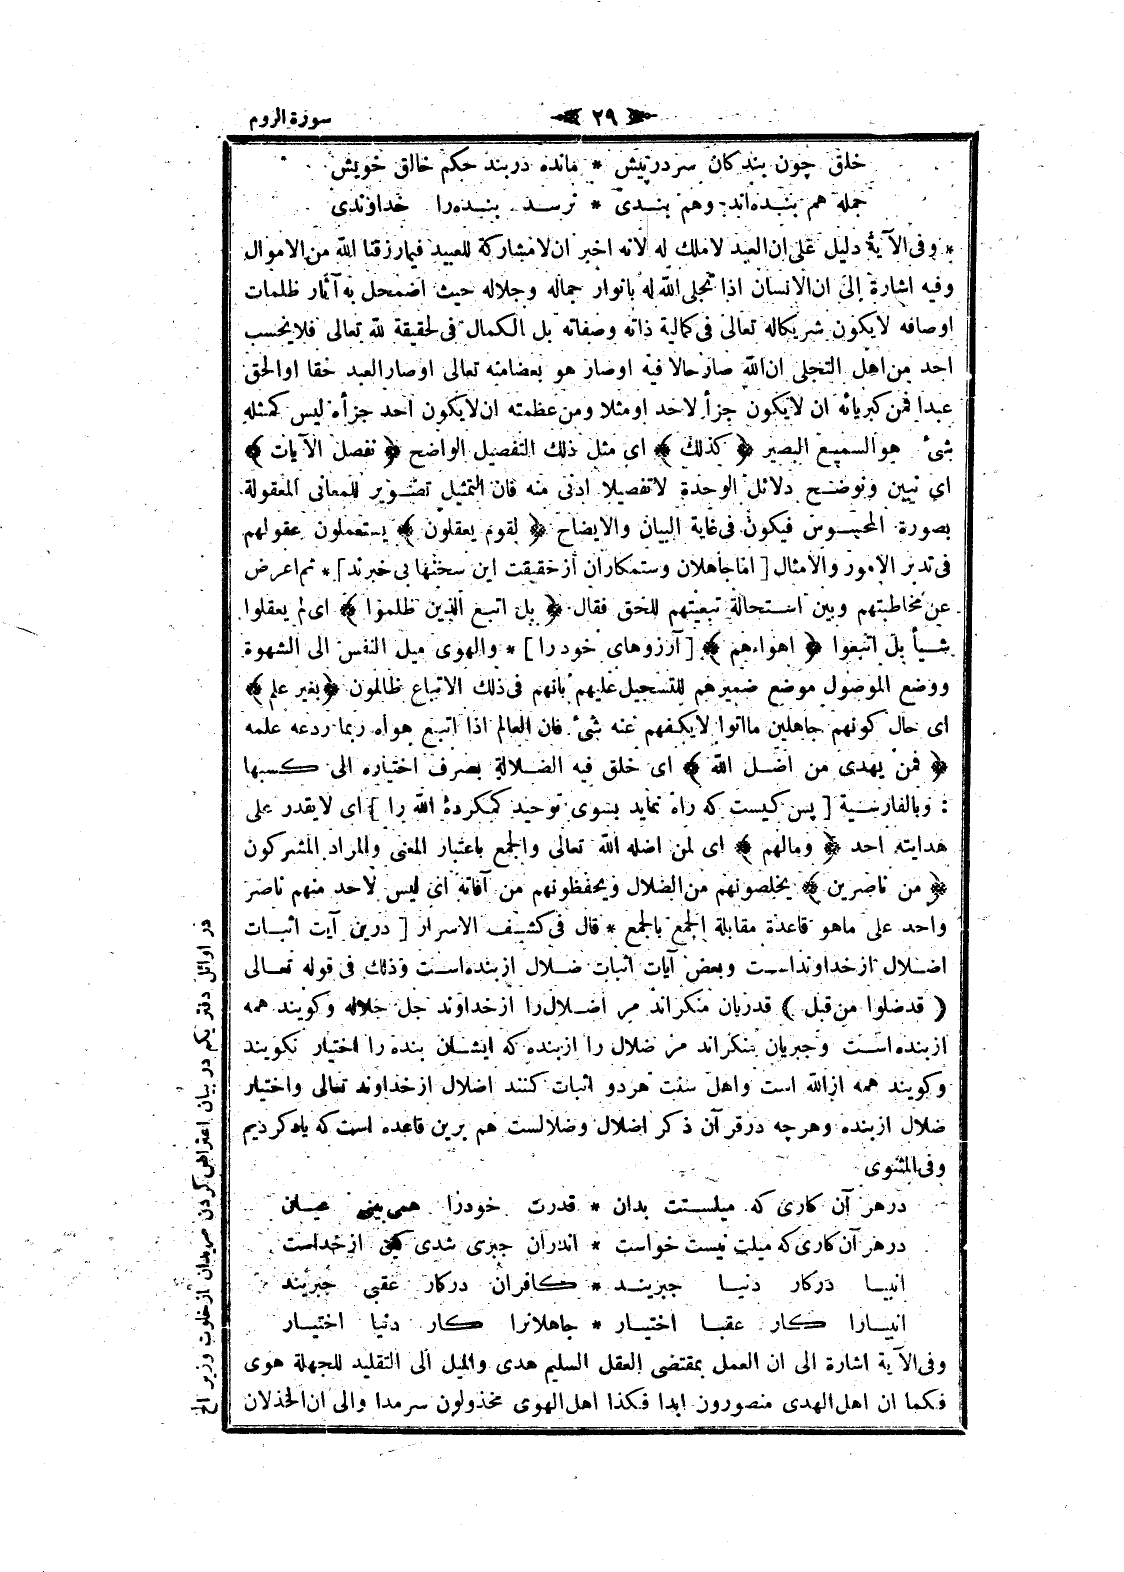 ﴿ ٢٩ ﴾ سورة الروم
خلق چون بندكان سردرپيش * مانده دربند حكم خالق خويش
جمله هم بنده‌اند وهم بندى * نرسد بنده‌را خداوندى
* وفى الآية دليل على ان العبد لا ملك له لانه اخبر ان لا مشاركة للعبيد فيما رزقنا الله من الاموال
وفيه اشارة الى ان الانسان اذا تجلى الله له بانوار جماله وجلاله حيث اضمحل به آثار ظلمات
اوصافه لا يكون شريكاله تعالى فى كمالية ذاته وصفاته بل الكمال فى لحقيقة لله تعالى فلا يحسب
احد من اهل التجلى ان الله صار حالا فيه او صار هو بعضا منه تعالى او صار العبد حقا او الحق
عبدا فمن كبريائه ان لا يكون جزأ لاحد او مثلا ومن عظمته ان لا يكون احد جزأه ليس كمثله
شئ هو السميع البصير ﴿ كذلك ﴾ اى مثل ذلك التفصيل الواضح ﴿ نفصل الآيات ﴾
اى نبين ونوضح دلائل الوحدة لا تفصيلا ادنى منه فان التمثيل تصوير للمعانى المعقولة
بصورة المحسوس فيكون فى غاية البيان والايضاح ﴿ لقوم يعقلون ﴾ يستعملون عقولهم
فى تدبر الامور والامثال [ اما جاهلان وستمكاران از حقيقت اين سخنها بى خبرند ] * ثم اعرض
عن مخاطبتهم وبين استحالة تبعيتهم للحق فقال ﴿ بل اتبع الذين ظلموا ﴾ اى لم يعقلوا
شيأ بل اتبعوا ﴿ اهواءهم ﴾ [ آرزوهاى خودرا ] * والهوى ميل النفس الى الشهوة
ووضع الموصول موضع ضميرهم للتسجيل عليهم بانهم فى ذلك الاتباع ظالمون ﴿ بغير علم ﴾
اى حال كونهم جاهلين ما اتوا لا يكفهم عنه شئ فان العالم اذا اتبع هواه ربما ردعه علمه
﴿ فمن يهدى من اضل الله ﴾ اى خلق فيه الضلالة بصرف اختياره الى كسبها
: وبالفارسية [ پس كيست كه راه نمايد بسوى توحيد كمكردهٔ الله را ] اى لا يقدر على
هدايته احد ﴿ ومالهم ﴾ اى لمن اضله الله تعالى والجمع باعتبار المعنى والمراد المشركون
﴿ من ناصرين ﴾ يخلصونهم من الضلال ويحفظونهم من آفاته اى ليس لاحد منهم ناصر
واحد على ماهو قاعدة مقابلة الجمع بالجمع * قال فى كشف الاسرار [ درين آيت اثبات
اضلال از خداونداست وبعض آيات اثبات ضلال ازبنده‌است وذلك فى قوله تعالى
( قد ضلوا من قبل ) قدريان منكراند مر اضلال‌را ازخداوند جل جلاله وكويند همه
ازبنده‌است وجبريان منكراند مر ضلال را ازبنده كه ايشان بنده را اختيار نكويند
وكويند همه ازالله است واهل سنت هردو اثبات كنند اضلال ازخداوند تعالى واختيار
ضلال ازبنده وهرچه درقرآن ذكر اضلال وضلالست هم برين قاعده است كه ياد كرديم
وفى المثنوى
درهر آن كارى كه ميلستت بدان * قدرت خودرا همى بينى عيان
درهر آن كارى كه ميلت نيست خواست * اندران جبرى شدى كين ازخداست
انبيا دركار دنيا جبريند * كافران دركار عقبى جبريند
انبيارا كار عقبا اختيار * جاهلانرا كار دنيا اختيار
وفى الآية اشارة الى ان العمل بمقتضى العقل السليم هدى والميل الى التقليد للجهلة هوى
فكما ان اهل الهدى منصورون ابدا فكذا اهل الهوى مخذولون سرمدا والى ان الخذلان
در اوائل دفتر يكم در بيان اعتراض كردن مريدان ازخلوت وزير الخ